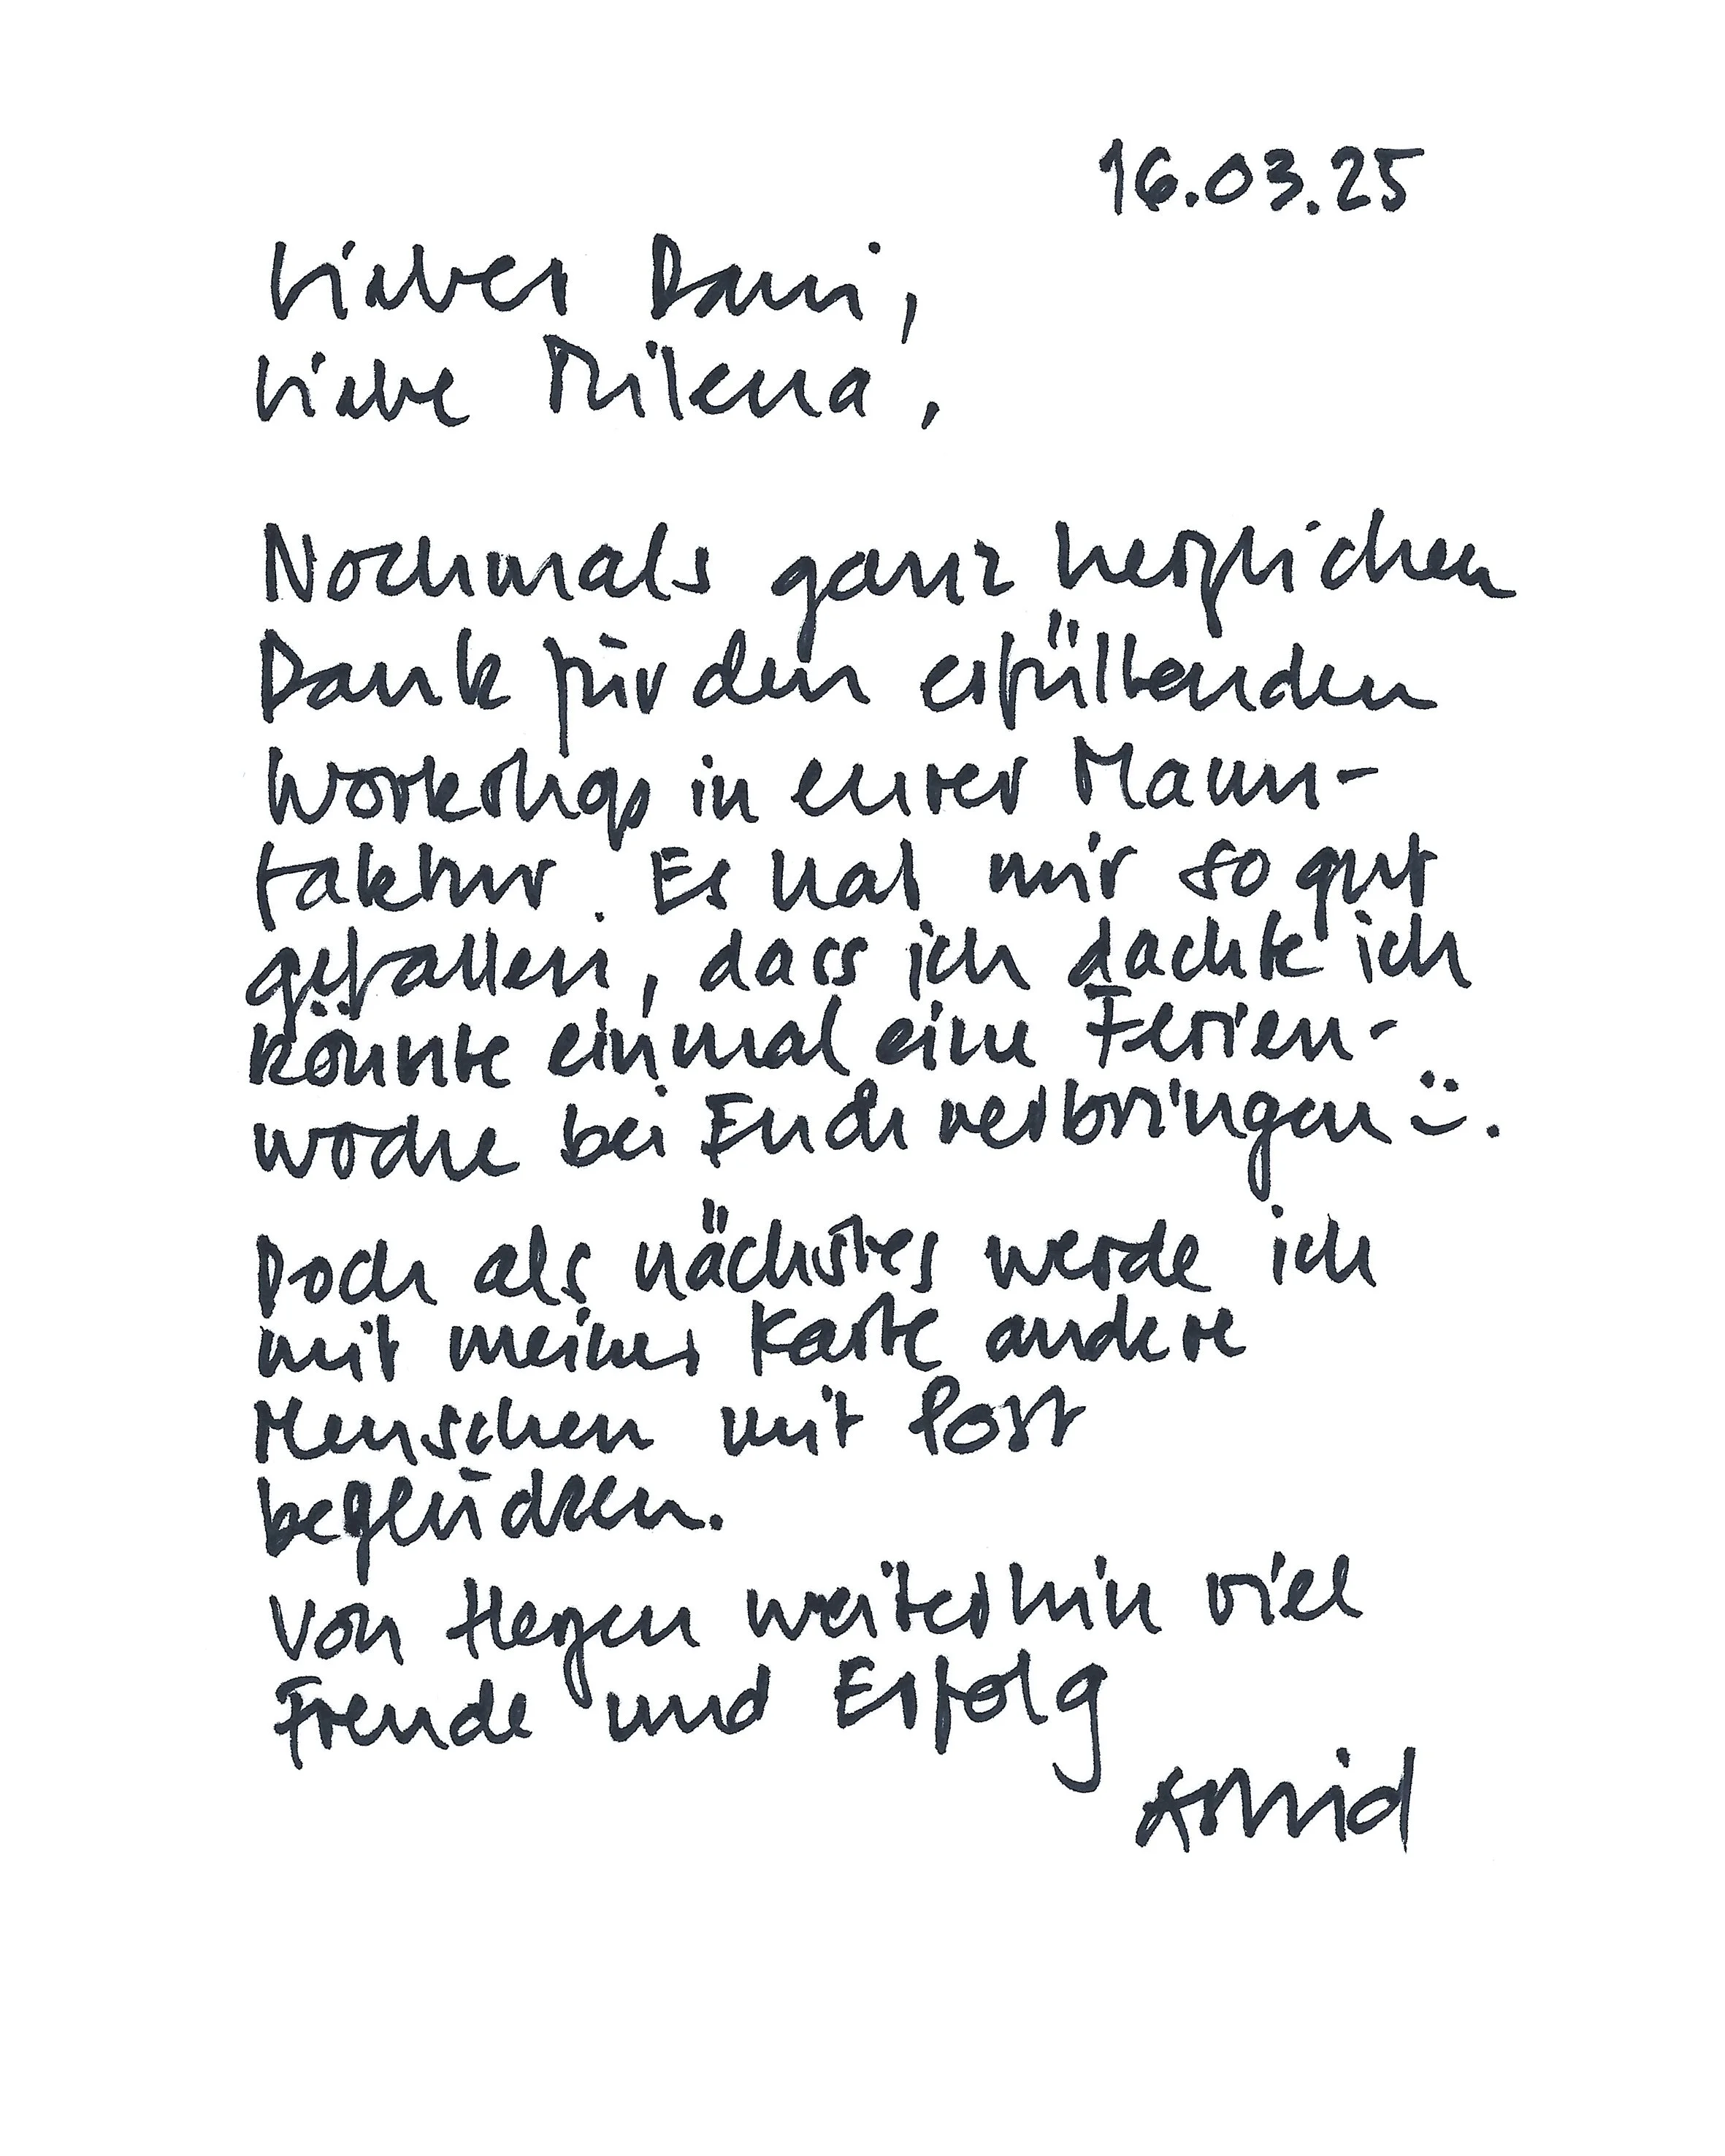 16.03.25
Lieber Dani,
Liebe Milena,
Nochmals ganz herzlichen
Dank für den erfüllenden
Workshop in eurer Manu-
faktur. Es hat mir so gut
gefallen, dass ich dachte ich
könnte einmal eine Ferien-
woche bei Euch verbringen :-).
Doch als nächstes werde ich
mit meiner Karte andere
Menschen mit Post
beglücken.
Von Herzen weiterhin viel
Freude und Erfolg
Astrid